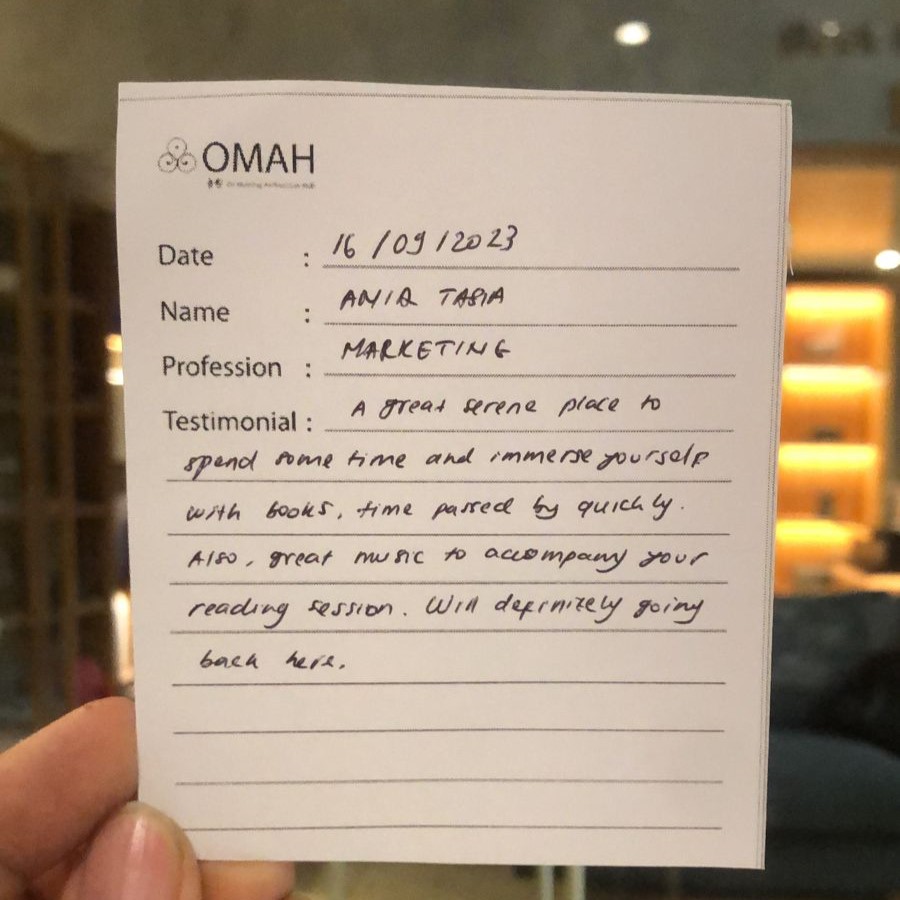 OMAH
Date : 16/09/2023
Name : TASIA
Profession : MARKETING
Testimonial : A great serene place to
spend some time and immerse yourself
with books, time passed by quickly.
Also, great music to accompany your
reading session. Will definitely going
back here.